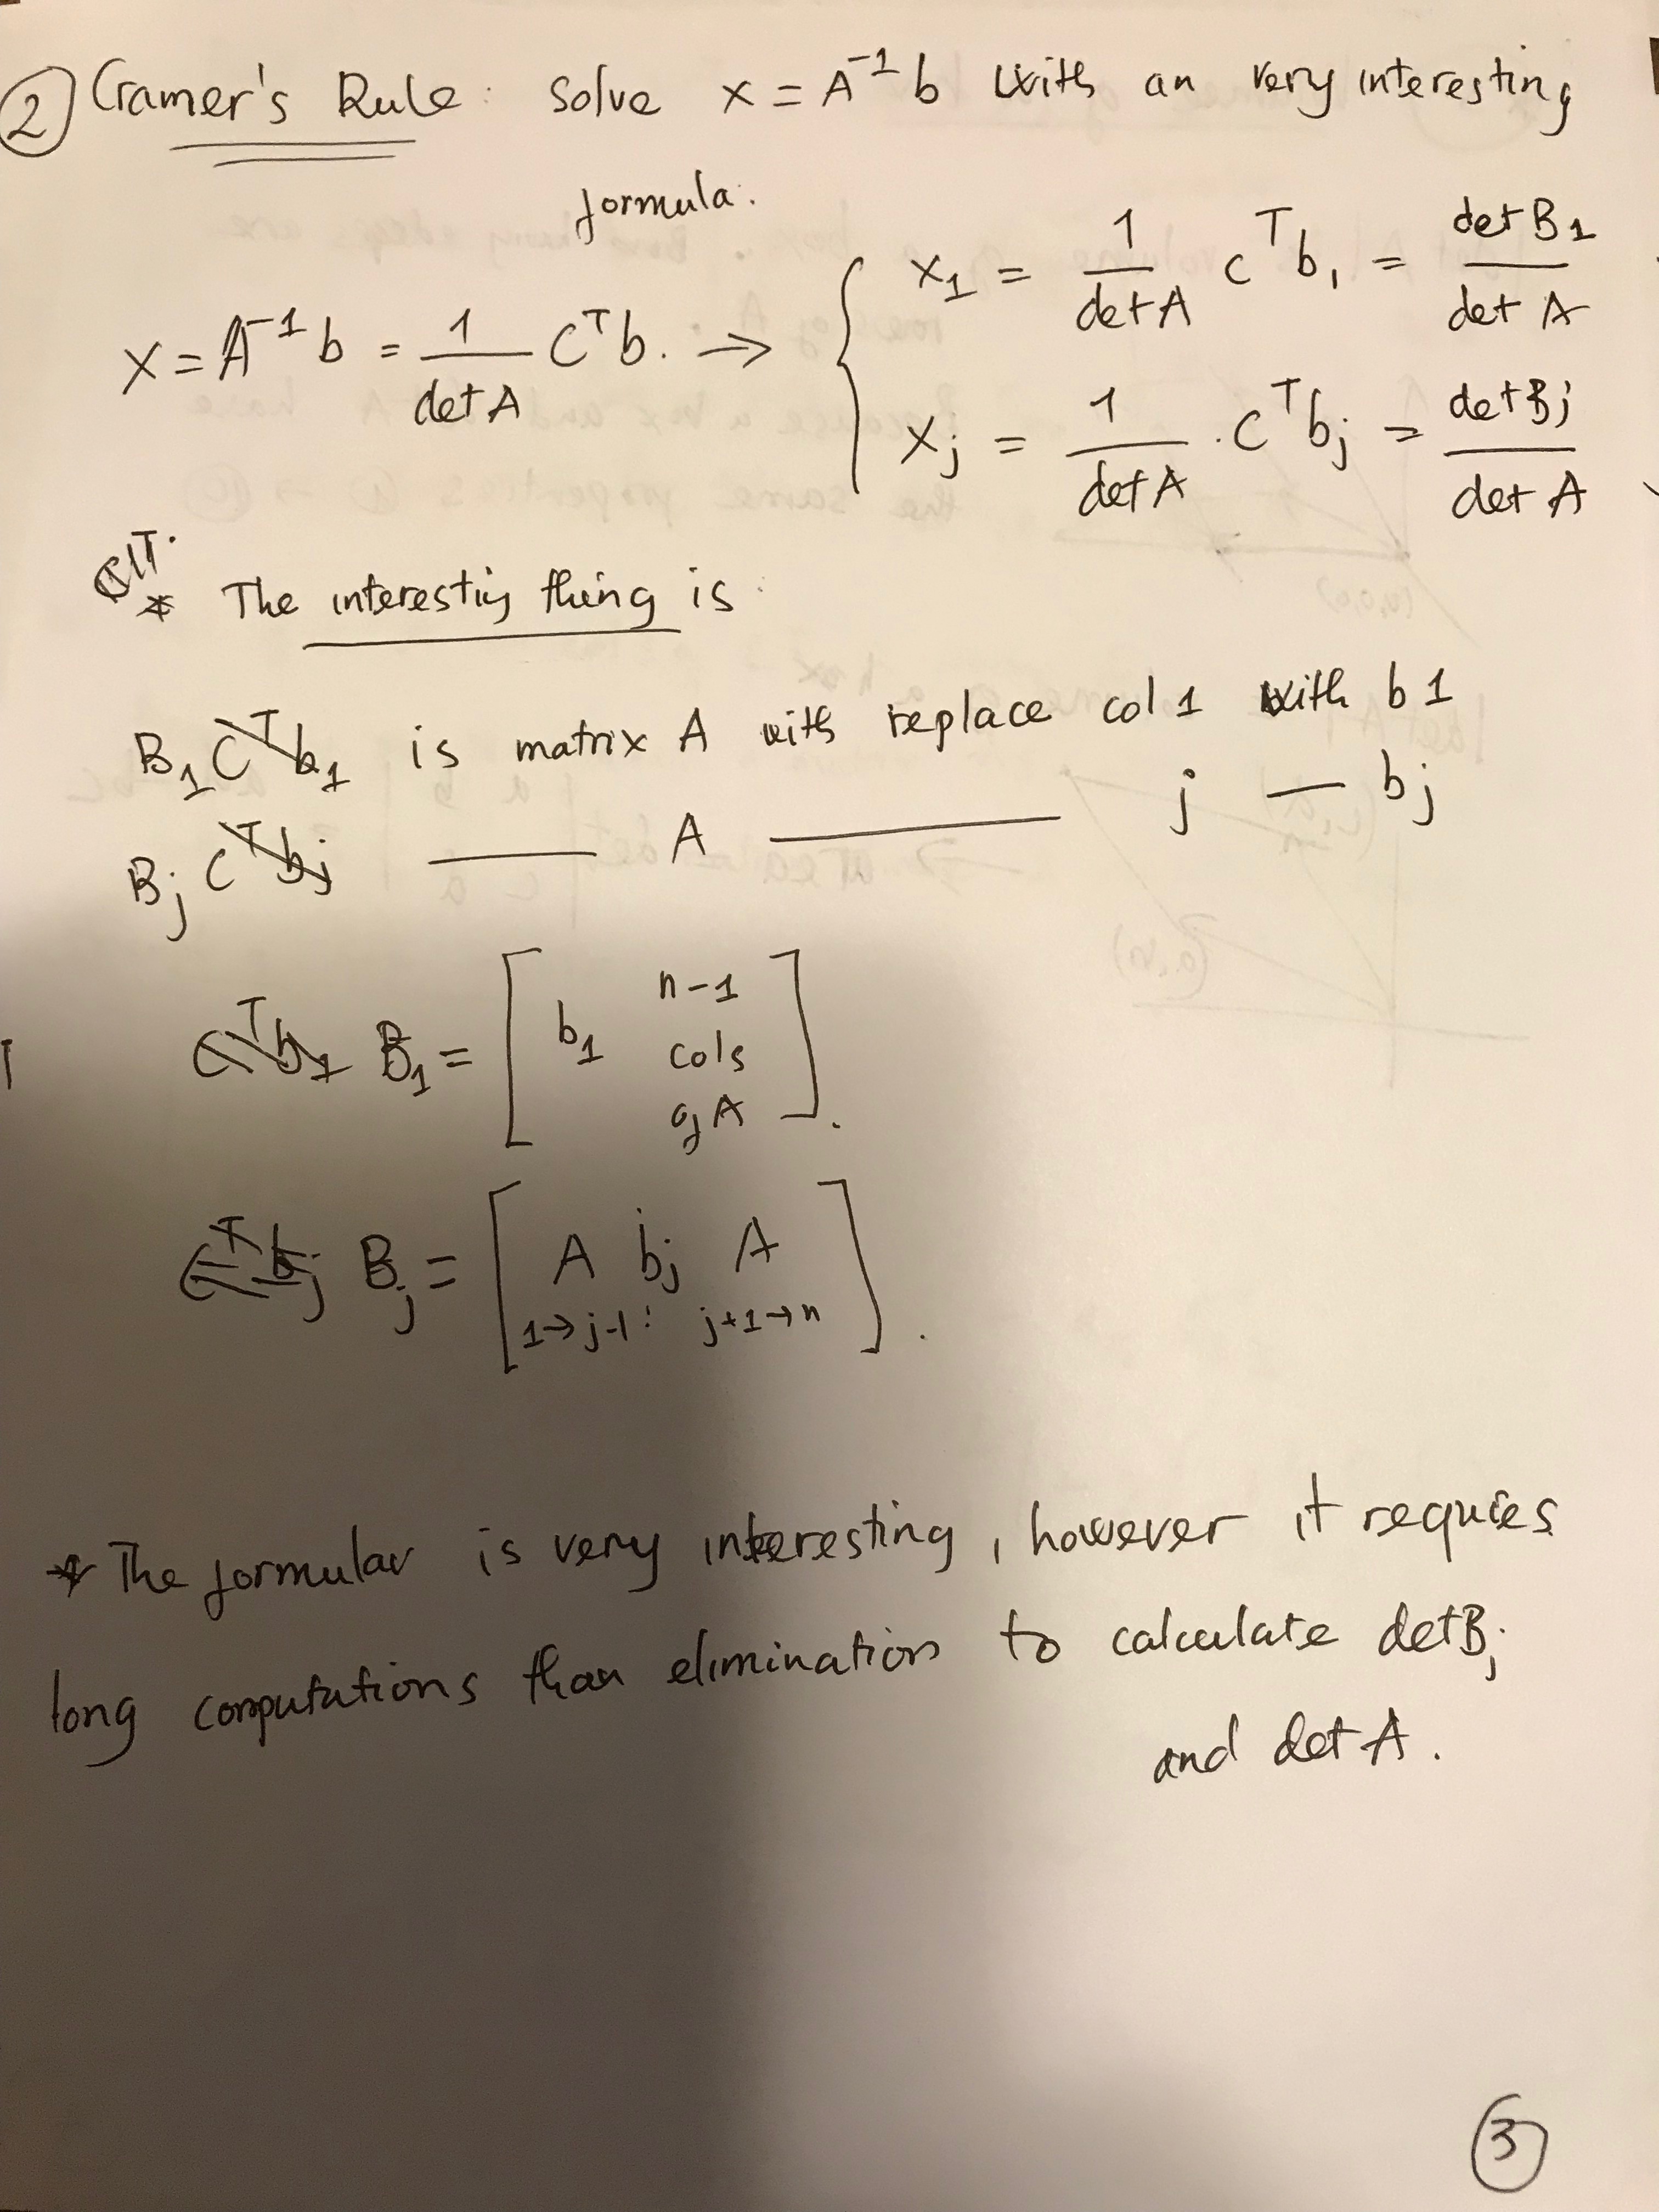 ② Cramer's Rule: solve x = A⁻¹ b with an very interesting
formula:
x = A⁻¹ b = 1/det A Cᵀ b. → { x₁ = 1/det A Cᵀ b₁ = det B₁/det A
xⱼ = 1/det A . Cᵀ bⱼ = det Bⱼ/det A
* The interesting thing is:
B₁ Cᵀb₁ is matrix A with replace col 1 with b 1
Bⱼ Cᵀbⱼ —— A —— j — bⱼ
Cᵀb₁ B₁ = [ b₁ n-1 cols of A ].
Cᵀbⱼ Bⱼ = [ A bⱼ A
1→j-1 j+1→n ].
* The formular is very interesting, however it requies
long computations than elimination to calculate det Bⱼ
and det A.
③